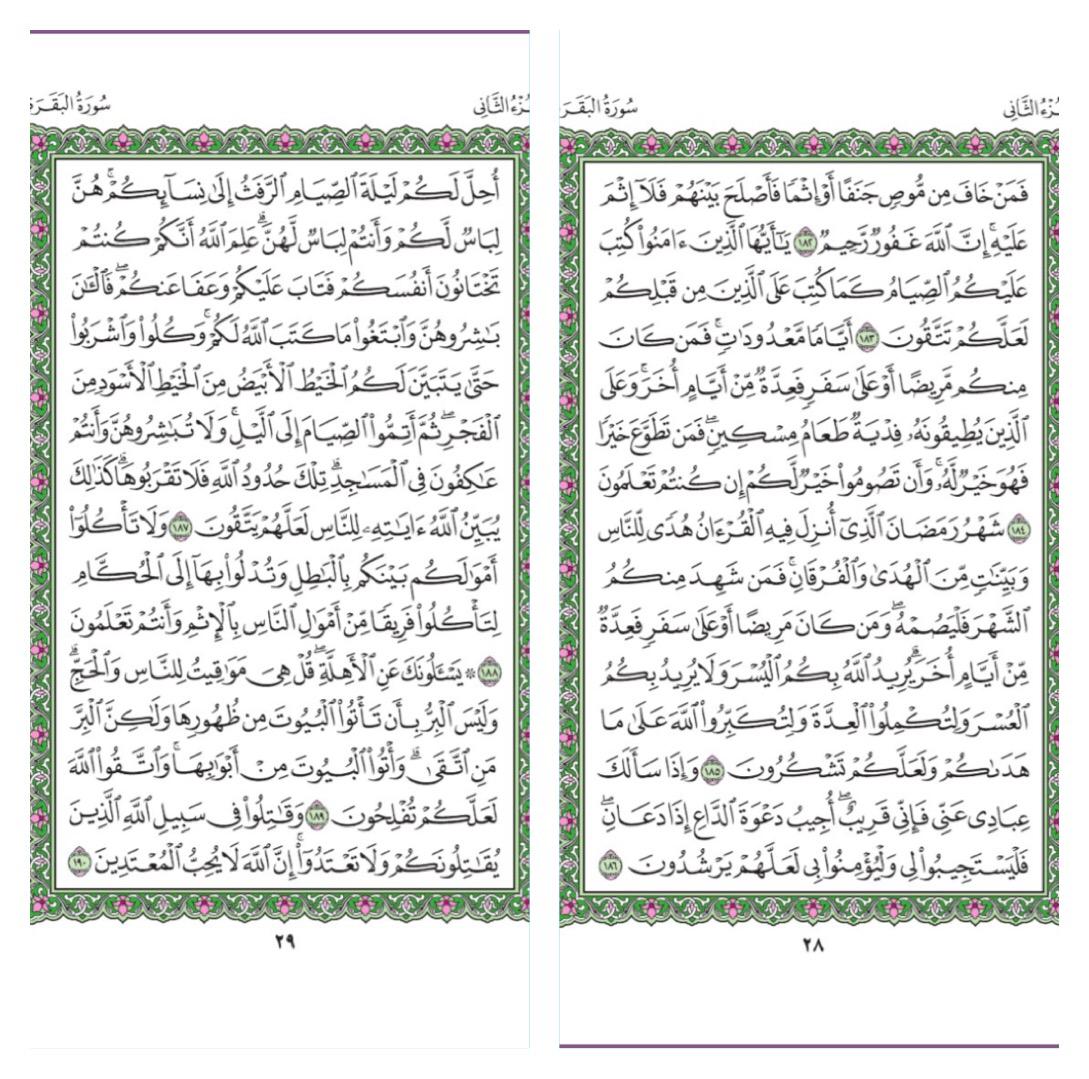 الجُزْءُ الثَّانِي
سُورَةُ البَقَرَة
فَمَنْ خَافَ مِن مُّوصٍ جَنَفًا أَوْ إِثْمًا فَأَصْلَحَ بَيْنَهُمْ فَلَآ إِثْمَ
عَلَيْهِۚ إِنَّ ٱللَّهَ غَفُورٌ رَّحِيمٌ ١٨٢ يَٰٓأَيُّهَا ٱلَّذِينَ ءَامَنُوا۟ كُتِبَ
عَلَيْكُمُ ٱلصِّيَامُ كَمَا كُتِبَ عَلَى ٱلَّذِينَ مِن قَبْلِكُمْ
لَعَلَّكُمْ تَتَّقُونَ ١٨٣ أَيَّامًا مَّعْدُودَٰتٍۚ فَمَن كَانَ
مِنكُم مَّرِيضًا أَوْ عَلَىٰ سَفَرٍ فَعِدَّةٌ مِّنْ أَيَّامٍ أُخَرَۚ وَعَلَى
ٱلَّذِينَ يُطِيقُونَهُۥ فِدْيَةٌ طَعَامُ مِسْكِينٍۖ فَمَن تَطَوَّعَ خَيْرًا
فَهُوَ خَيْرٌ لَّهُۥۚ وَأَن تَصُومُوا۟ خَيْرٌ لَّكُمْ إِن كُنتُمْ تَعْلَمُونَ
١٨٤ شَهْرُ رَمَضَانَ ٱلَّذِىٓ أُنزِلَ فِيهِ ٱلْقُرْءَانُ هُدًى لِّلنَّاسِ
وَبَيِّنَٰتٍ مِّنَ ٱلْهُدَىٰ وَٱلْفُرْقَانِۚ فَمَن شَهِدَ مِنكُمُ
ٱلشَّهْرَ فَلْيَصُمْهُۖ وَمَن كَانَ مَرِيضًا أَوْ عَلَىٰ سَفَرٍ فَعِدَّةٌ
مِّنْ أَيَّامٍ أُخَرَۗ يُرِيدُ ٱللَّهُ بِكُمُ ٱلْيُسْرَ وَلَا يُرِيدُ بِكُمُ
ٱلْعُسْرَ وَلِتُكْمِلُوا۟ ٱلْعِدَّةَ وَلِتُكَبِّرُوا۟ ٱللَّهَ عَلَىٰ مَا
هَدَىٰكُمْ وَلَعَلَّكُمْ تَشْكُرُونَ ١٨٥ وَإِذَا سَأَلَكَ
عِبَادِى عَنِّى فَإِنِّى قَرِيبٌۖ أُجِيبُ دَعْوَةَ ٱلدَّاعِ إِذَا دَعَانِۖ
فَلْيَسْتَجِيبُوا۟ لِى وَلْيُؤْمِنُوا۟ بِى لَعَلَّهُمْ يَرْشُدُونَ ١٨٦
٢٨
الجُزْءُ الثَّانِي
سُورَةُ البَقَرَة
أُحِلَّ لَكُمْ لَيْلَةَ ٱلصِّيَامِ ٱلرَّفَثُ إِلَىٰ نِسَآئِكُمْۚ هُنَّ
لِبَاسٌ لَّكُمْ وَأَنتُمْ لِبَاسٌ لَّهُنَّۗ عَلِمَ ٱللَّهُ أَنَّكُمْ كُنتُمْ
تَخْتَانُونَ أَنفُسَكُمْ فَتَابَ عَلَيْكُمْ وَعَفَا عَنكُمْۖ فَٱلْـَٰٔنَ
بَٰشِرُوهُنَّ وَٱبْتَغُوا۟ مَا كَتَبَ ٱللَّهُ لَكُمْۚ وَكُلُوا۟ وَٱشْرَبُوا۟
حَتَّىٰ يَتَبَيَّنَ لَكُمُ ٱلْخَيْطُ ٱلْأَبْيَضُ مِنَ ٱلْخَيْطِ ٱلْأَسْوَدِ مِنَ
ٱلْفَجْرِۖ ثُمَّ أَتِمُّوا۟ ٱلصِّيَامَ إِلَى ٱلَّيْلِۚ وَلَا تُبَٰشِرُوهُنَّ وَأَنتُمْ
عَٰكِفُونَ فِى ٱلْمَسَٰجِدِۗ تِلْكَ حُدُودُ ٱللَّهِ فَلَا تَقْرَبُوهَاۗ كَذَٰلِكَ
يُبَيِّنُ ٱللَّهُ ءَايَٰتِهِۦ لِلنَّاسِ لَعَلَّهُمْ يَتَّقُونَ ١٨٧ وَلَا تَأْكُلُوٓا۟
أَمْوَٰلَكُم بَيْنَكُم بِٱلْبَٰطِلِ وَتُدْلُوا۟ بِهَآ إِلَى ٱلْحُكَّامِ
لِتَأْكُلُوا۟ فَرِيقًا مِّنْ أَمْوَٰلِ ٱلنَّاسِ بِٱلْإِثْمِ وَأَنتُمْ تَعْلَمُونَ
١٨٨ * يَسْـَٔلُونَكَ عَنِ ٱلْأَهِلَّةِۖ قُلْ هِىَ مَوَٰقِيتُ لِلنَّاسِ وَٱلْحَجِّۗ
وَلَيْسَ ٱلْبِرُّ بِأَن تَأْتُوا۟ ٱلْبُيُوتَ مِن ظُهُورِهَا وَلَٰكِنَّ ٱلْبِرَّ
مَنِ ٱتَّقَىٰۗ وَأْتُوا۟ ٱلْبُيُوتَ مِنْ أَبْوَٰبِهَاۚ وَٱتَّقُوا۟ ٱللَّهَ
لَعَلَّكُمْ تُفْلِحُونَ ١٨٩ وَقَٰتِلُوا۟ فِى سَبِيلِ ٱللَّهِ ٱلَّذِينَ
يُقَٰتِلُونَكُمْ وَلَا تَعْتَدُوٓا۟ۚ إِنَّ ٱللَّهَ لَا يُحِبُّ ٱلْمُعْتَدِينَ ١٩٠
٢٩